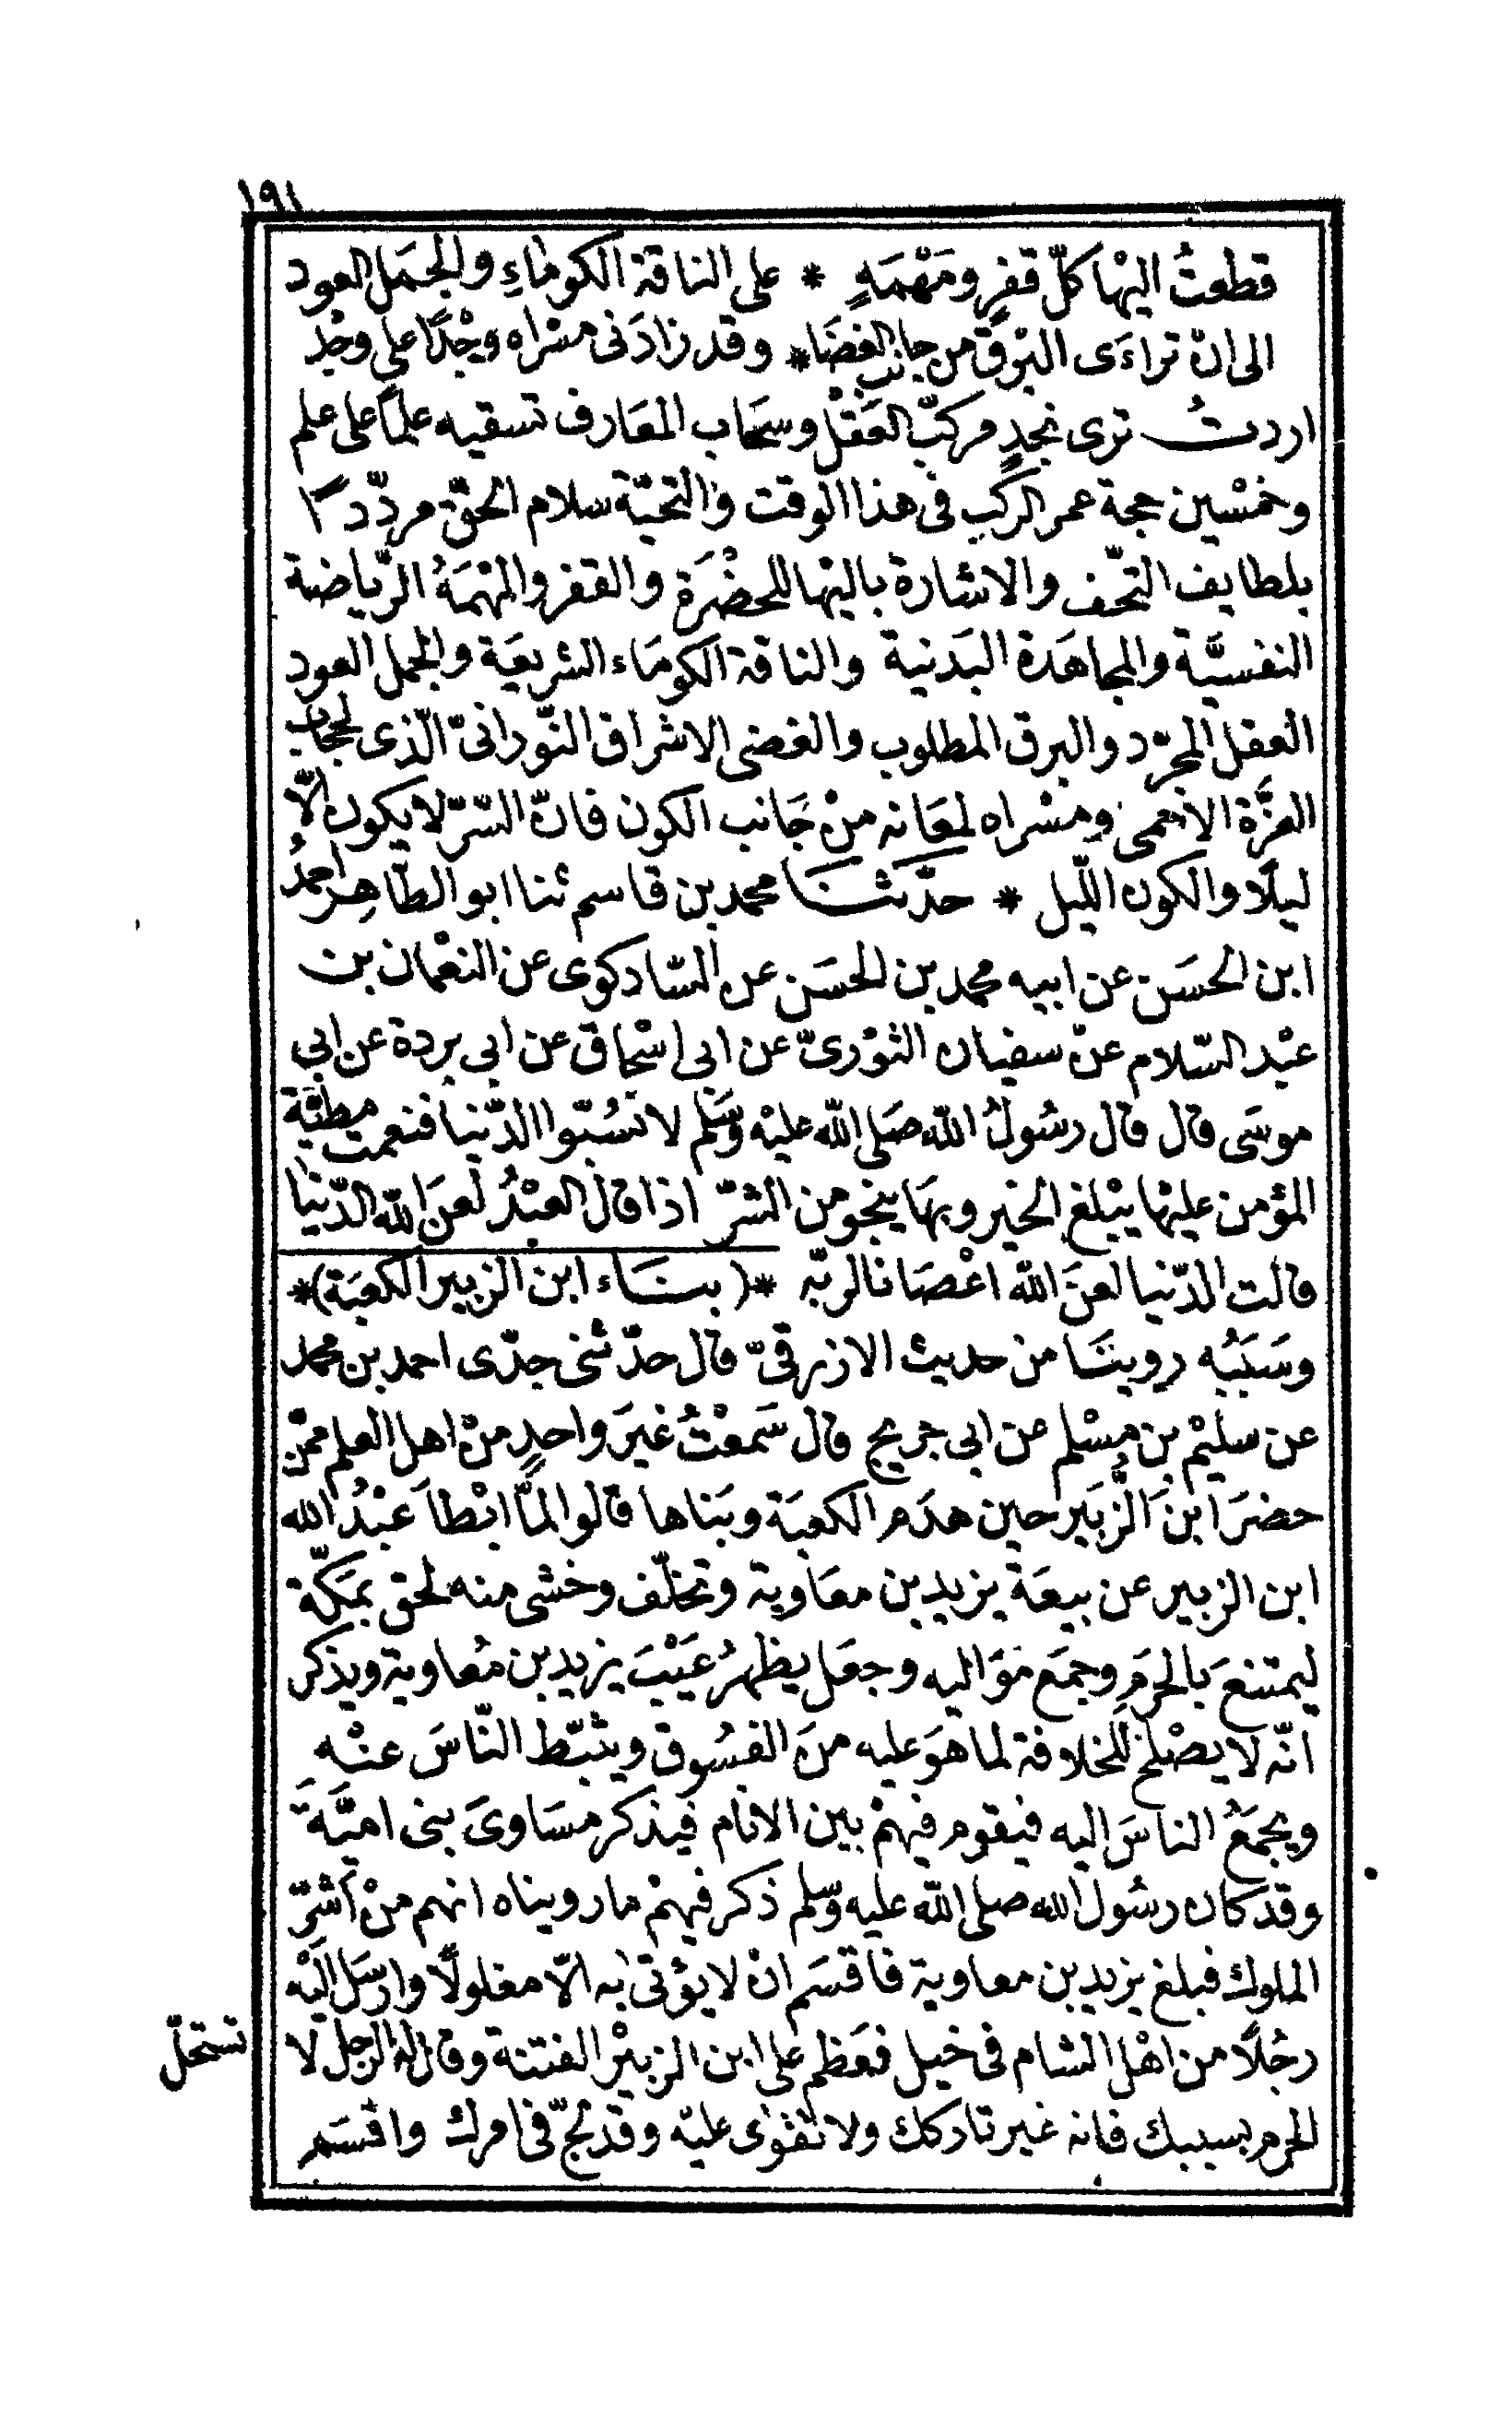 ١٩١
قطعتُ اليْها كلّ قفرٍ ومَهْمَهٍ * على الناقة الكوماءِ والجمَل العود
الى انْ تراءَى البْرق من جانب الغضَا * وقد زادَنى مسْراه وجْدًا على وجْد
اردتُ ترى نجدٍ مركبّ العَقْل وسحَاب المعَارف تسقيه علمًا على علم
وخمْسين حجة عمر الركب فى هذا الوقت والتحيّة سلام الحقّ مردّدًا
بلطايف التّحف والاشارة باليْها للحضْرَة والقفر والمهْمَهُ الرّياضة
النفسيَّة والمجاهَدة البَدنية والناقة الكومَاء الشريعَة والجمل العود
العقل المجرّد والبرق المطلوب والغضى الاشراق النّورانىّ الّذى لحجاب
العزَّة الاحمى ومسْراه لمعَانه منْ جَانب الكون فانّ السّرّ لا يكون الّا
ليلًا والكون اللّيل * حدّثنا محمد بن قاسم ثنا ابو الطّاهِر احمدُ
ابن الحسَن عن ابيه محمد بن الحسَن عن السّادكوى عن النعْمان بن
عبْد السّلام عنْ سفيان الثوْرىّ عن ابى اسْحاق عن ابى بردة عن ابى
موسَى قال قال رسُولُ اللّه صَلى اللّه عليْه وسَلم لا تسُبّوا الدّنيا فنعمت مطيّة
المؤمن عليْها يبْلغ الخير وبهَا ينجو من الشرّ اذا قال العبْدُ لعَن اللّه الدّنيَا
قالت الدّنيا لعنَ اللّه اعْصَانا لربّه *(بناء ابن الزبير الكعبَة)*
وسَببُه روينَا من حديث الازرقىّ قال حدّثنى جدّى احمد بن محمد
عن سليْم بن مسْلم عن ابى جريج قال سَمعْتُ غيرَ واحدٍ منْ اهل العلم ممّن
حضرَ ابنَ الزُّبَير حين هدَم الكعبَة وبَناها قالوا لمّا ابْطأ عبْدُ الله
ابن الزبير عن بيعَة يزيد بن معَاوية وتخلّف وخشى منه لحق بمَكّة
ليمتنعَ بالحرَمِ وجمَع مَوَاليه وجعَل يظهرُ عيْبَ يزيد بن مُعاوية ويذكر
انّه لا يصْلح للخلافة لما هوَ عليه منَ الفسُوق ويثبّط النّاسَ عنْه
ويجمَعُ الناسَ اليه فيقوم فيهمْ بين الانام فيذكر مسَاوىَ بنى اميَّةَ
وقد كان رسُول الله صلى اللّه عليه وسّلم ذكر فيهمْ ما رويناه انهم منْ اَشرّ
الملوك فبلغ يزيد بن معاوية فاقسَم انْ لا يؤتى به الّا مغلولًا وارسَل اليْه
رجُلًا من اهْل الشام فى خيل فعَظم على ابن الزبيْر الفتنة وقال له الرجل لا
تستحلّ
الحرم بسببك فانه غير تاركك ولا تقوى عليْه وقد لجّ فى امرك واقسَم